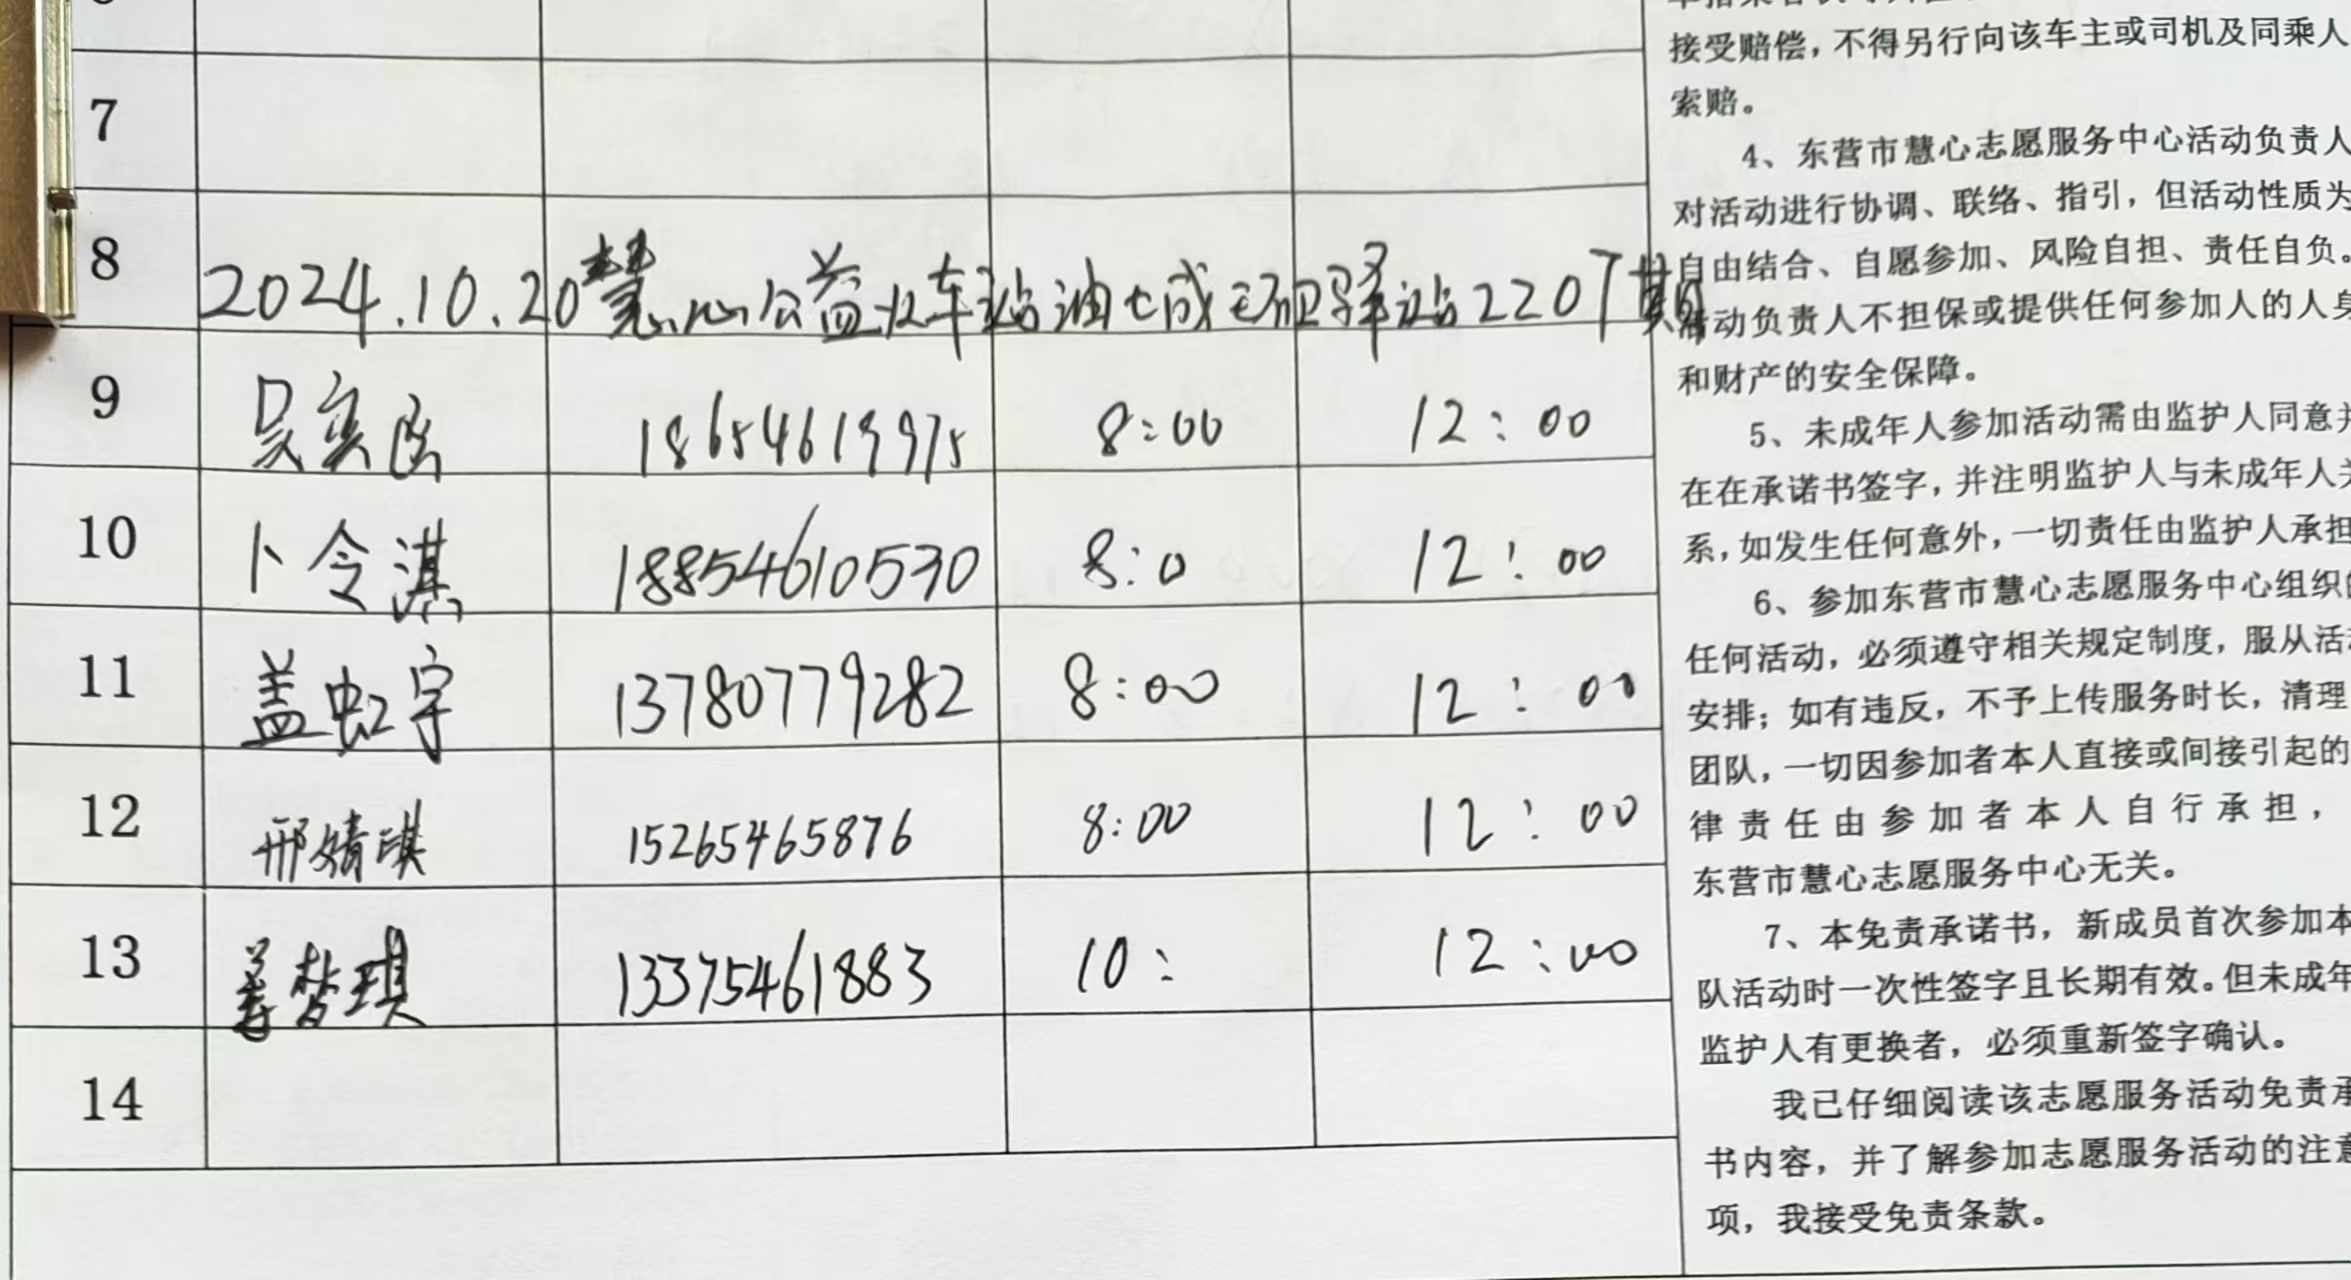 7
8 2024.10.20慧心公益火车站油城王祖驿站2207期
9 吴奕 18654619975 8:00 12:00
10 卜令淇 18854610530 8:0 12:00
11 盖虹宇 13780779282 8:00 12:00
12 邢婧琪 15265465876 8:00 12:00
13 姜梦琪 13375461883 10: 12:00
14
接受赔偿，不得另行向该车主或司机及同乘人
索赔。
4、东营市慧心志愿服务中心活动负责人
对活动进行协调、联络、指引，但活动性质为
自由结合、自愿参加、风险自担、责任自负。
活动负责人不担保或提供任何参加人的人身
和财产的安全保障。
5、未成年人参加活动需由监护人同意并
在在承诺书签字，并注明监护人与未成年人关
系，如发生任何意外，一切责任由监护人承担
6、参加东营市慧心志愿服务中心组织的
任何活动，必须遵守相关规定制度，服从活动
安排；如有违反，不予上传服务时长，清理
团队，一切因参加者本人直接或间接引起的
律责任由参加者本人自行承担，
东营市慧心志愿服务中心无关。
7、本免责承诺书，新成员首次参加本
队活动时一次性签字且长期有效。但未成年
监护人有更换者，必须重新签字确认。
我已仔细阅读该志愿服务活动免责承
书内容，并了解参加志愿服务活动的注意
项，我接受免责条款。